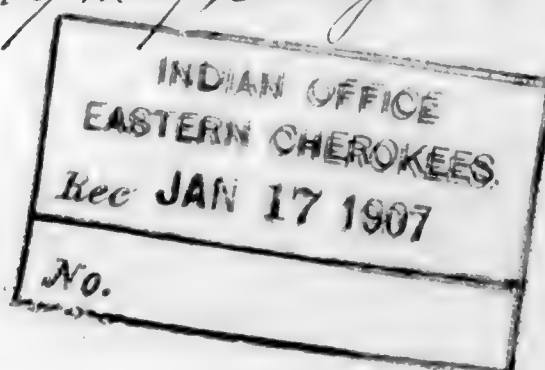 INDIAN OFFICE
EASTERN CHEROKEES.
Rec JAN 17 1907
No.